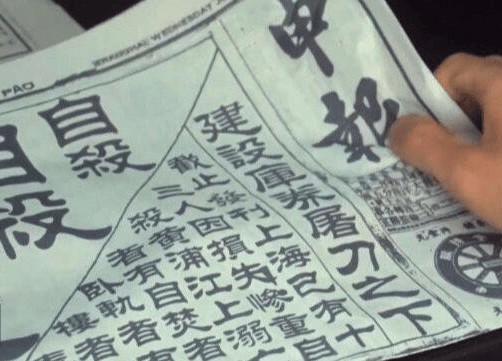 PAO
SHANGHAI WEDNESDAY J
申報
建設庫券屠刀之下
截止發刊上海已有十
三人因損失慘重自
殺黃浦江上溺亡
者有自焚者
臥軌者有
樓者
自殺
自殺